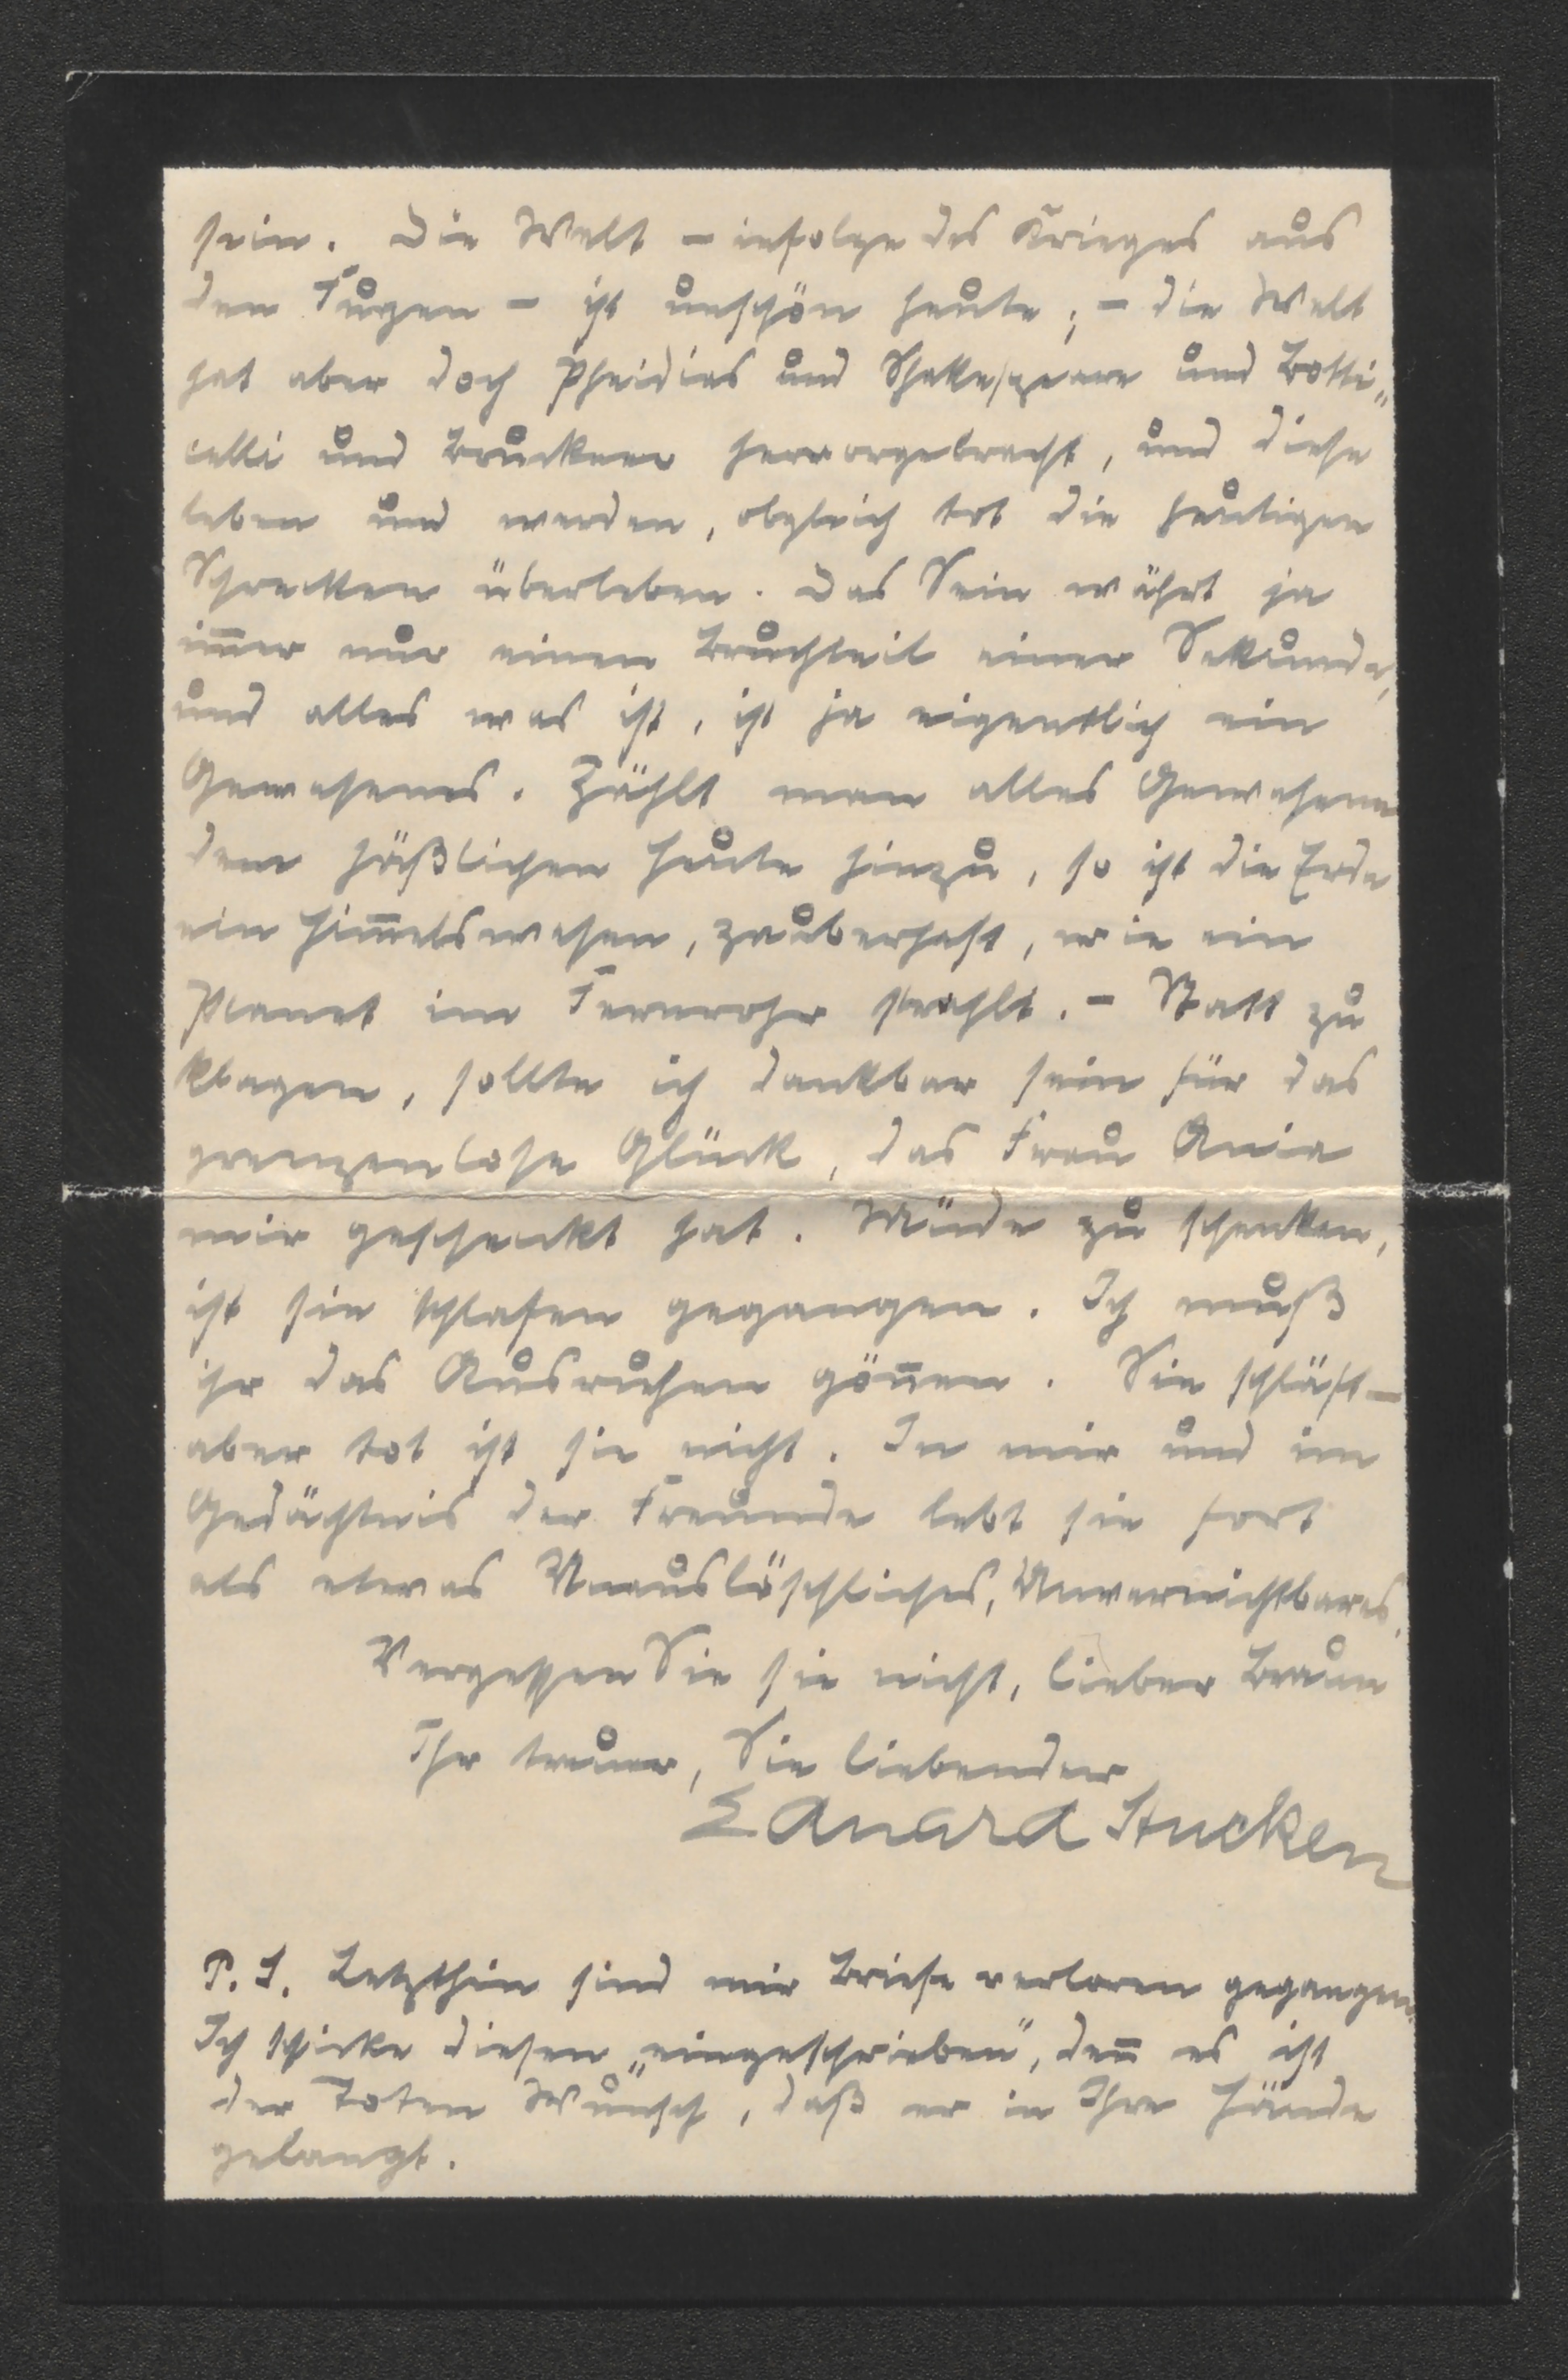 sein. Die Welt – infolge des Krieges aus
den Fugen – ist unschön heute; – die Welt
hat aber doch Pheidias und Shakespeare und Botti„
celli und Bruckner hervorgebracht, und diese
leben und werden, obgleich tot die heutigen
Schrecken überleben. Das Sein währt ja
im̅er nur einen Bruchteil einer Sekunde,
und alles was ist, ist ja eigentlich ein
Gewesenes. Zählt man alles Gewesene
dem häßlichen Heute hinzu, so ist die Erde
ein Him̅elswesen, zauberhaft, wie ein
Planet im Fernrohr strahlt. – Statt zu
klagen, sollte ich dankbar sein für das
grenzenlose Glück, das Frau Ania
mir geschenkt hat. Müde zu schenken,
ist sie schlafen gegangen. Ich muß
ihr das Ausruhen gön̅en. Sie schläft –
aber tot ist sie nicht. In mir und im
Gedächtnis der Freunde lebt sie fort
als etwas Unauslöschliches, Unvernichtbares.
Vergessen Sie sie nicht, lieber Braun
Ihr treuer, Sie liebender
Eduard Stucken
P.S. Letzthin sind mir Briefe verloren gegangen.
Ich schicke diesen „eingeschrieben", den̅ es ist
der Toten Wunsch, daß er in Ihre Hände
gelangt.